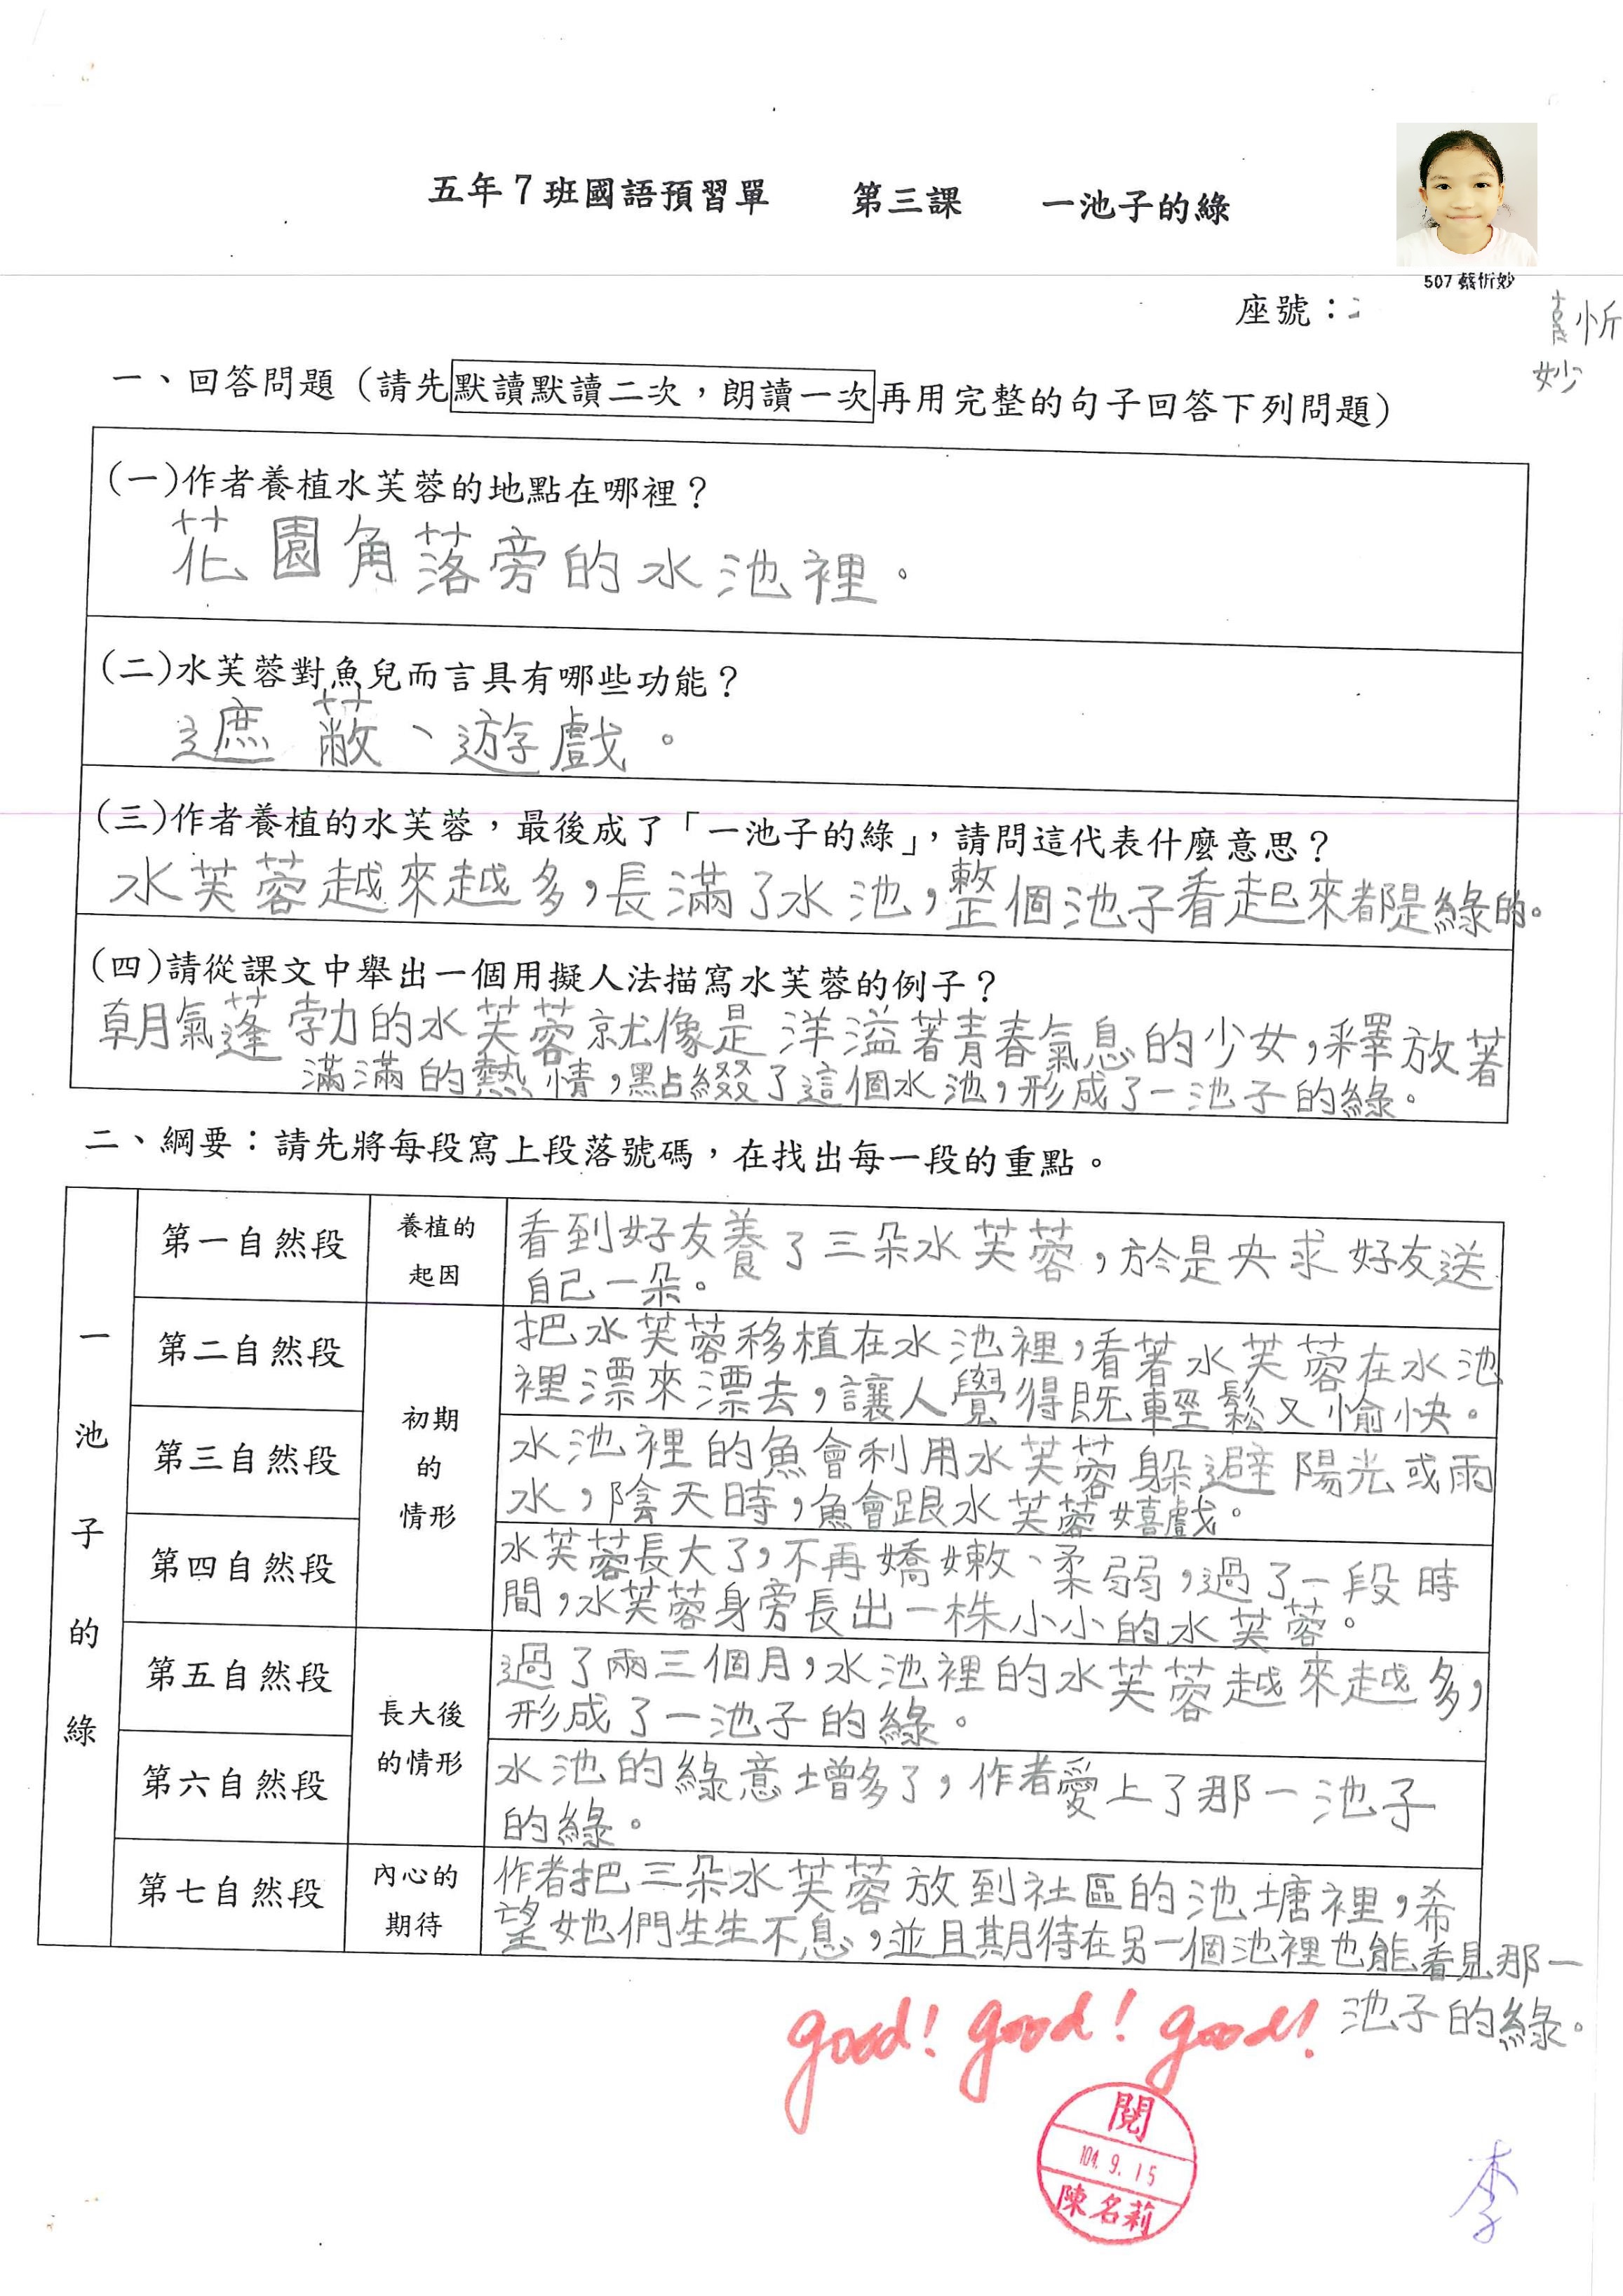 五年7班國語預習單 第三課 一池子的綠
507 蔡忻妙
座號：
忻
妙
一、回答問題（請先默讀默讀二次，朗讀一次再用完整的句子回答下列問題）
(一)作者養植水芙蓉的地點在哪裡？
花園角落旁的水池裡。
(二)水芙蓉對魚兒而言具有哪些功能？
遮蔽、遊戲。
(三)作者養植的水芙蓉，最後成了「一池子的綠」，請問這代表什麼意思？
水芙蓉越來越多，長滿了水池，整個池子看起來都是綠的。
(四)請從課文中舉出一個用擬人法描寫水芙蓉的例子？
朝氣蓬勃的水芙蓉就像是洋溢著青春氣息的少女，釋放著
滿滿的熱情，點綴了這個水池，形成了一池子的綠。
二、綱要：請先將每段寫上段落號碼，在找出每一段的重點。
一池子的綠
第一自然段
養植的
起因
看到好友養了三朵水芙蓉，於是央求好友送
自己一朵。
第二自然段
初期
的
情形
把水芙蓉移植在水池裡，看著水芙蓉在水池
裡漂來漂去，讓人覺得既輕鬆又愉快。
第三自然段
水池裡的魚會利用水芙蓉躲避陽光或雨
水，陰天時，魚會跟水芙蓉嬉戲。
第四自然段
水芙蓉長大了，不再嬌嫩、柔弱，過了一段時
間，水芙蓉身旁長出一株小小的水芙蓉。
第五自然段
長大後
的情形
過了兩三個月，水池裡的水芙蓉越來越多，
形成了一池子的綠。
第六自然段
水池的綠意增多了，作者愛上了那一池子
的綠。
第七自然段
內心的
期待
作者把三朵水芙蓉放到社區的池塘裡，希
望她們生生不息，並且期待在另一個池裡也能看見那一
池子的綠。
good! good! good!
閱
104. 9. 15
陳名莉
李